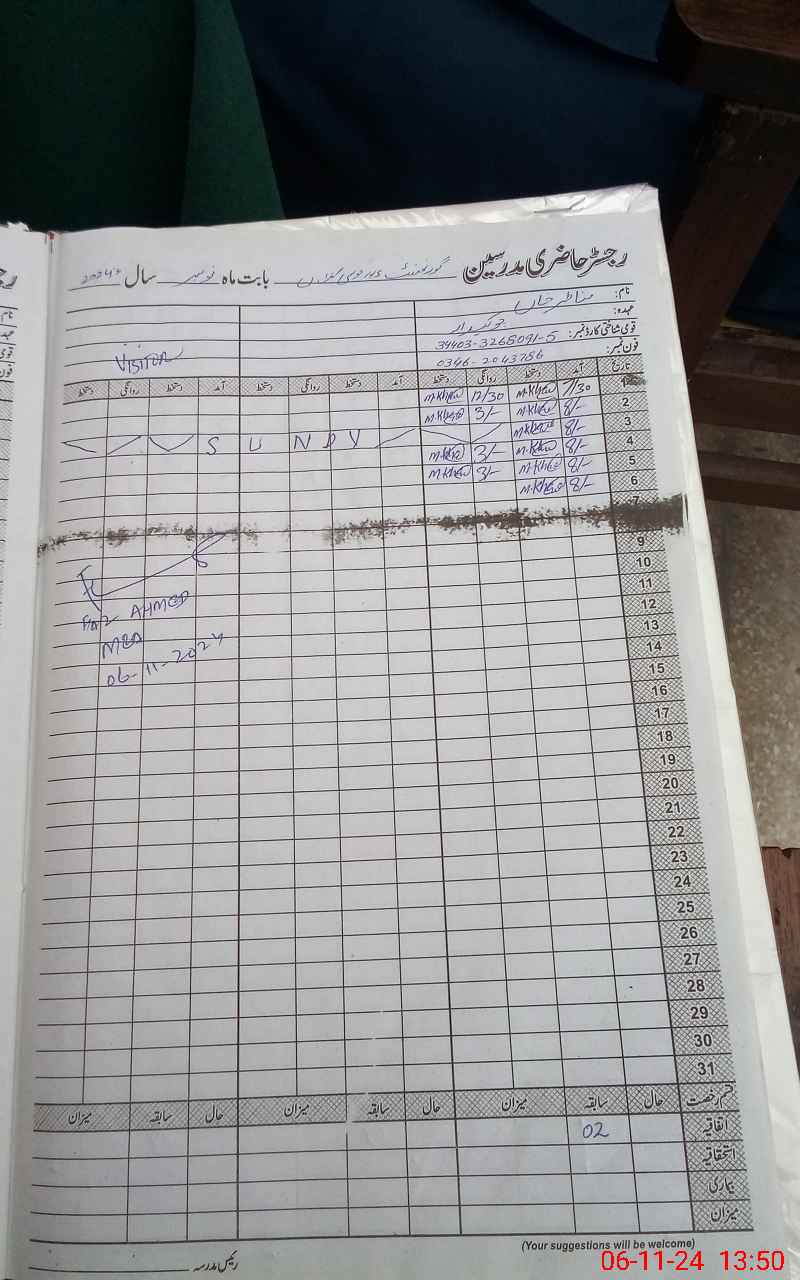 رجسٹر حاضری مدرسین گورنمنٹ بابت ماہ نومبر سال 2024ء
نام: مناظر خان
عہدہ: چوکیدار
قومی شناختی کارڈ نمبر: 34403-3268091-5
فون نمبر: 0346-2043786
VISITOR
تاریخ آمد دستخط روانگی دستخط آمد دستخط روانگی دستخط آمد دستخط روانگی دستخط
1 7/30 M.Khan 12/30 M.Khan
2 8/- M.Khan 3/- M.Khan
3 8/- M.Khan SUNDY
4 8/- M.Khan 3/- M.Khan
5 8/- M.Khan 3/- M.Khan
6 8/- M.Khan
7
9
10
11
AHMED
12
13
MEA
14
06-11-2024
15
16
17
18
19
20
21
22
23
24
25
26
27
28
29
30
31
قسم رخصت حال سابقہ میزان حال سابقہ میزان حال سابقہ میزان
اتفاقیہ 02
استحقاقیہ
بیماری
میزان
(Your suggestions will be welcome)
رئیس مدرسہ
06-11-24 13:50